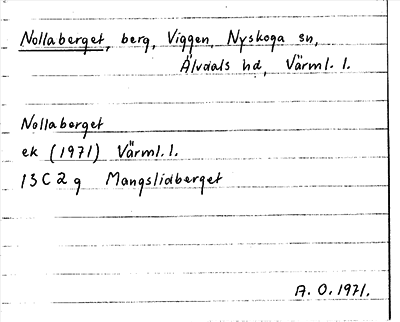 Nollaberget, berg, Viggen, Nyskoga sn,
Älvdals hd, Värml. l.
Nollaberget
ek (1971) Värml. l.
13 C 2 g Mangslidberget
A. O. 1971.